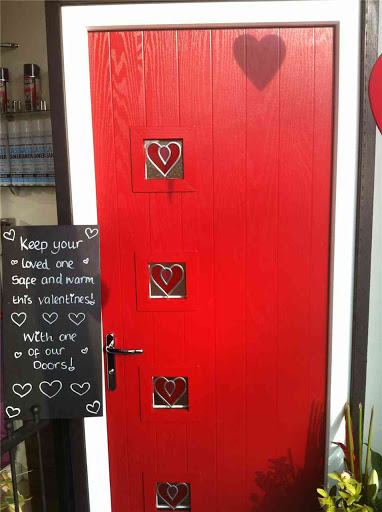 Keep your
loved one
Safe and warm
this valentines!
With one
of our
Doors!